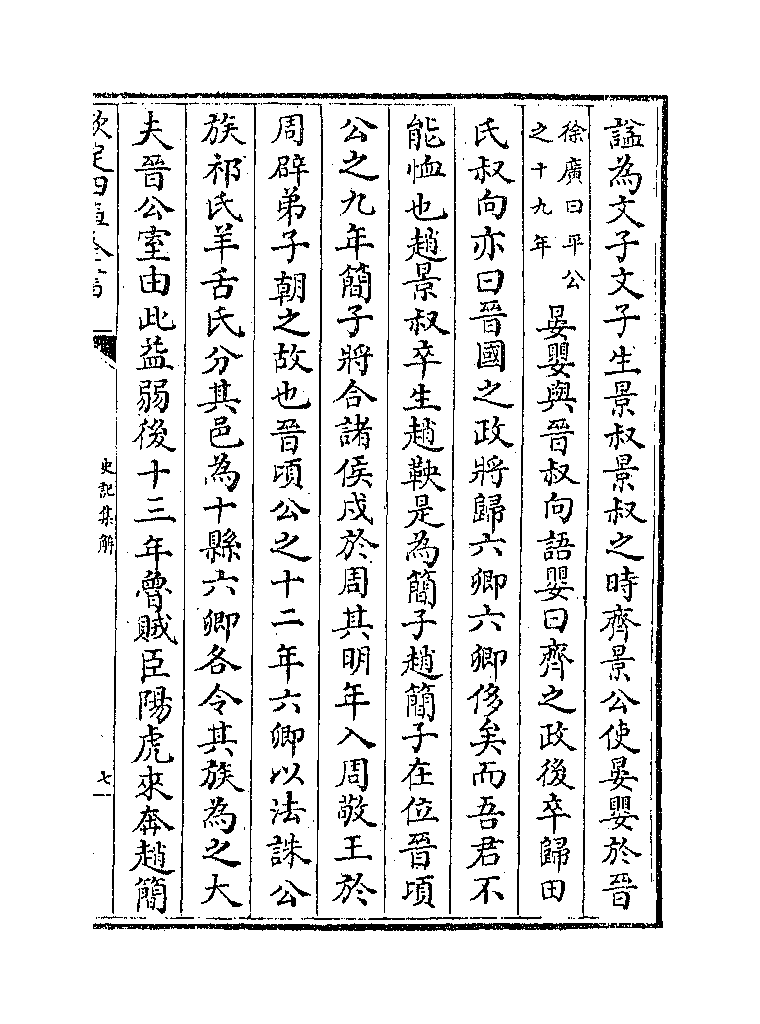 諡為文子文子生景叔景叔之時齊景公使晏嬰於晉
徐廣曰平公
之十九年
晏嬰與晉叔向語嬰曰齊之政後卒歸田
氏叔向亦曰晉國之政將歸六卿六卿侈矣而吾君不
能恤也趙景叔卒生趙鞅是為簡子趙簡子在位晉頃
公之九年簡子將合諸侯戍於周其明年入周敬王於
周辟弟子朝之故也晉頃公之十二年六卿以法誅公
族祁氏羊舌氏分其邑為十縣六卿各令其族為之大
夫晉公室由此益弱後十三年魯賊臣陽虎來奔趙簡
欽定四庫全書
史記集解
七